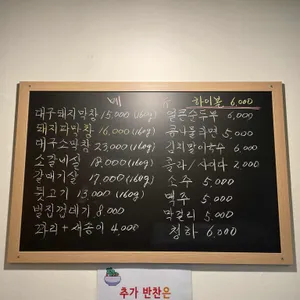 메뉴
대구돼지막창 15,000 (160g)
돼지파막창 16,000 (160g)
대구소막창 23,000 (160g)
소갈비살 18,000 (160g)
갈매기살 17,000 (160g)
뒷고기 13,000 (160g)
벌집껍데기 8,000
꽈리+새송이 4,000
하이볼 6,000
얼큰순두부 6,000
콩나물라면 5,000
김치말이국수 6,000
콜라/사이다 2,000
소주 5,000
맥주 5,000
막걸리 5,000
청하 6,000
추가 반찬은